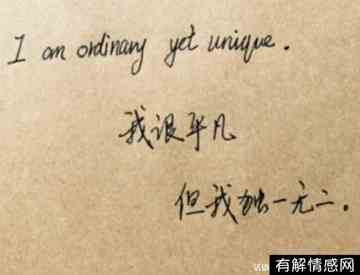 I am ordinary yet unique.
我很平凡
但我独一无二。
有解情感网